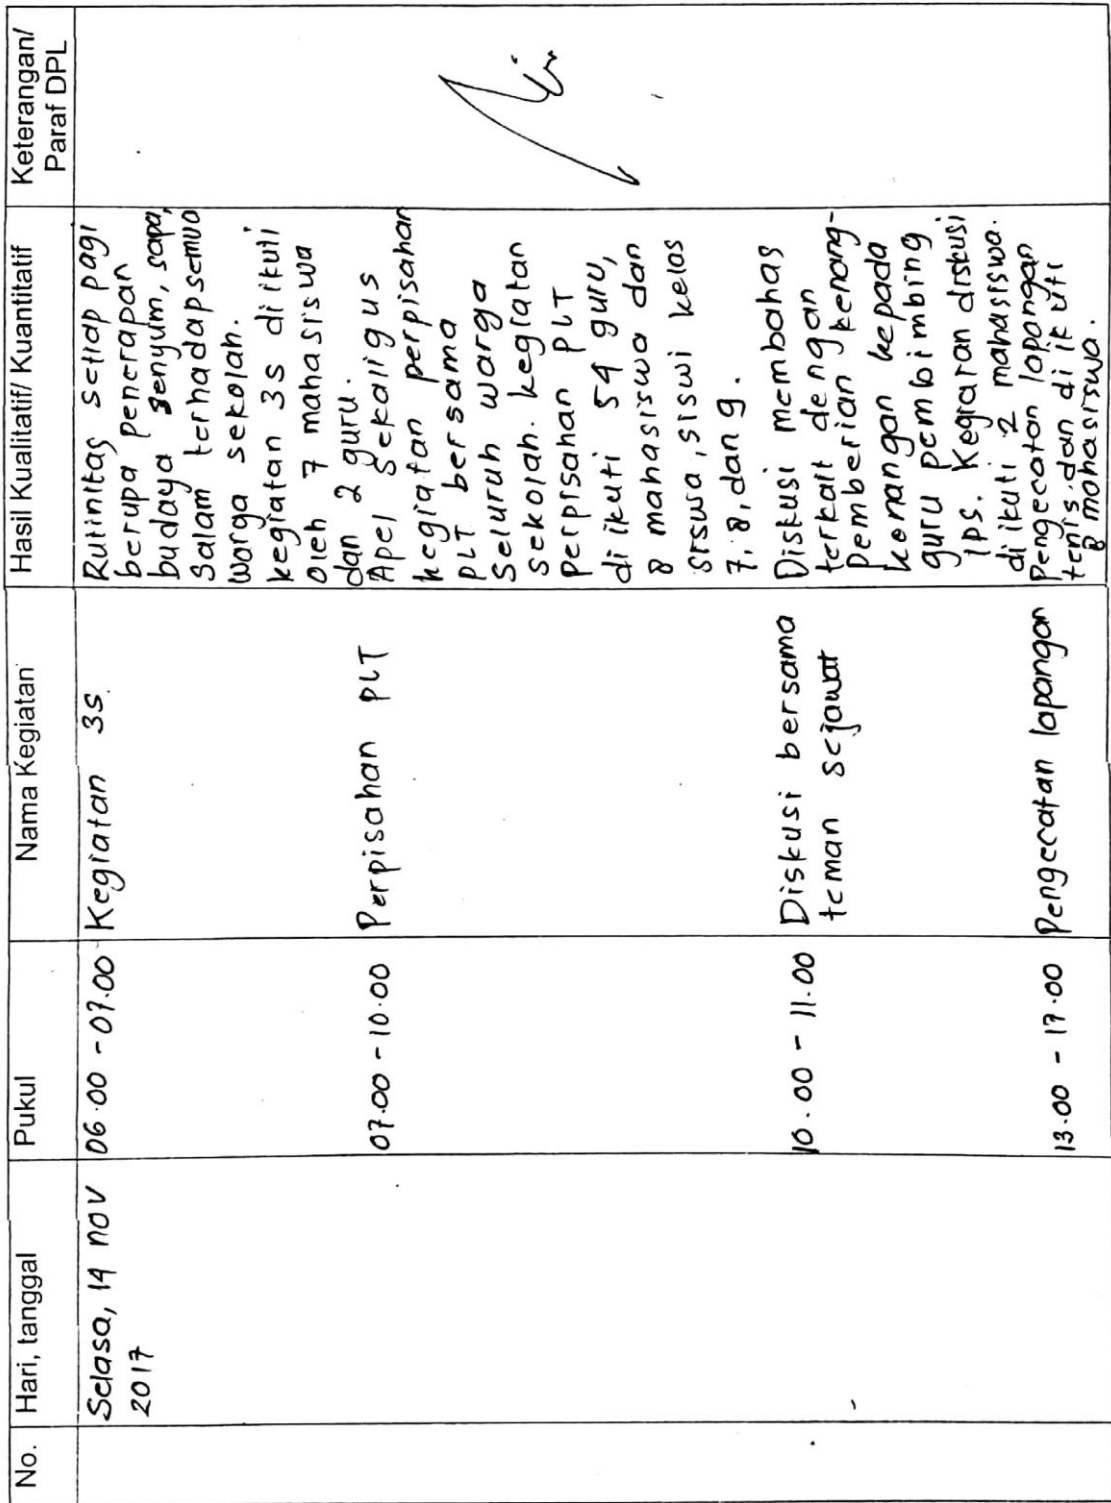 No.
Hari, tanggal
Pukul
Nama Kegiatan
Hasil Kualitatif/ Kuantitatif
Keterangan/
Paraf DPL
Selasa, 14 nov
2017
06.00 - 07.00
Kegiatan 3s.
Rutinitas setiap pagi
berupa penerapan
budaya senyum, sapa,
Salam terhadap semua
warga sekolah.
kegiatan 3s di ikuti
oleh 7 mahasiswa
dan 2 guru.
07.00 - 10.00
Perpisahan PLT
Apel sekaligus
kegiatan perpisahan
PLT bersama
Seluruh warga
sekolah. kegiatan
perpisahan PLT
di ikuti 54 guru,
8 mahasiswa dan
siswa, siswi kelas
7, 8, dan 9.
10.00 - 11.00
Diskusi bersama
teman sejawat
Diskusi membahas
terkait dengan
pemberian kenang-
kenangan kepada
guru pembimbing
IPS. Kegiatan diskusi
di ikuti 2 mahasiswa.
13.00 - 17.00
Pengecatan lapangan
Pengecatan lapangan
tenis, dan di ikuti
8 mahasiswa.